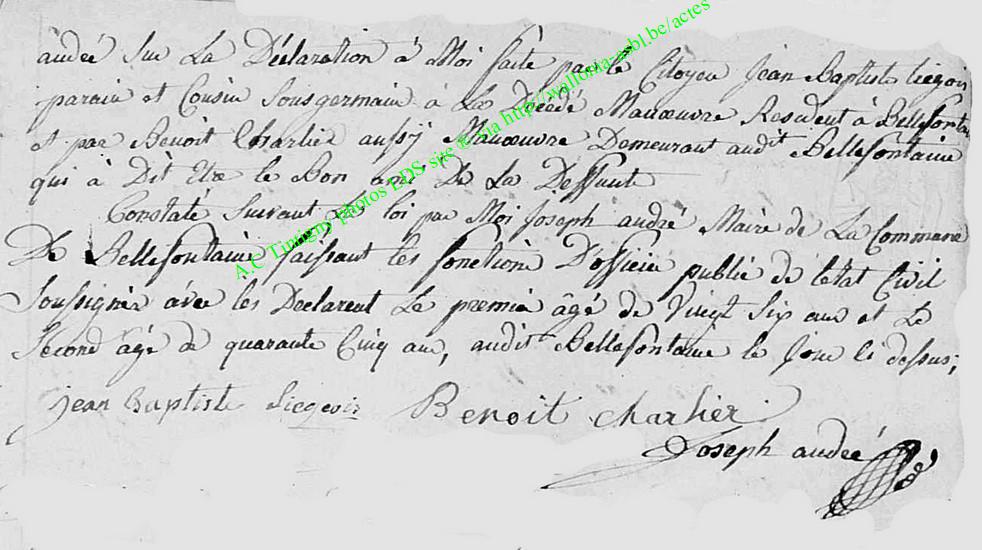 andré sur La Déclaration à Moi faite par le Citoyen Jean Baptiste liegois
parain et Cousin Sousgermain à La Décédé Manoeuvre Resident à Bellefontaine
et par Benoit Charlier aussÿ Manoeuvre Demeurant audit Bellefontaine
qui à Dit Etre le Bon ami De La Deffunte
Constaté Suivant La loi par Moi Joseph andré Maire de La Commune
De Bellefontaine faissant les fonctions D'officier public de letat Civil
Soussignés avec les Declarent Le premié âgé de Vingt Six ans et Le
Second âgé de quarante Cinq ans, audit Bellefontaine le Jour le dessus;
Jean Baptiste Liegeois Benoit charlier
Joseph andré
A.C Tintigny photos EDS site via http://wallonia-asbl.be/actes